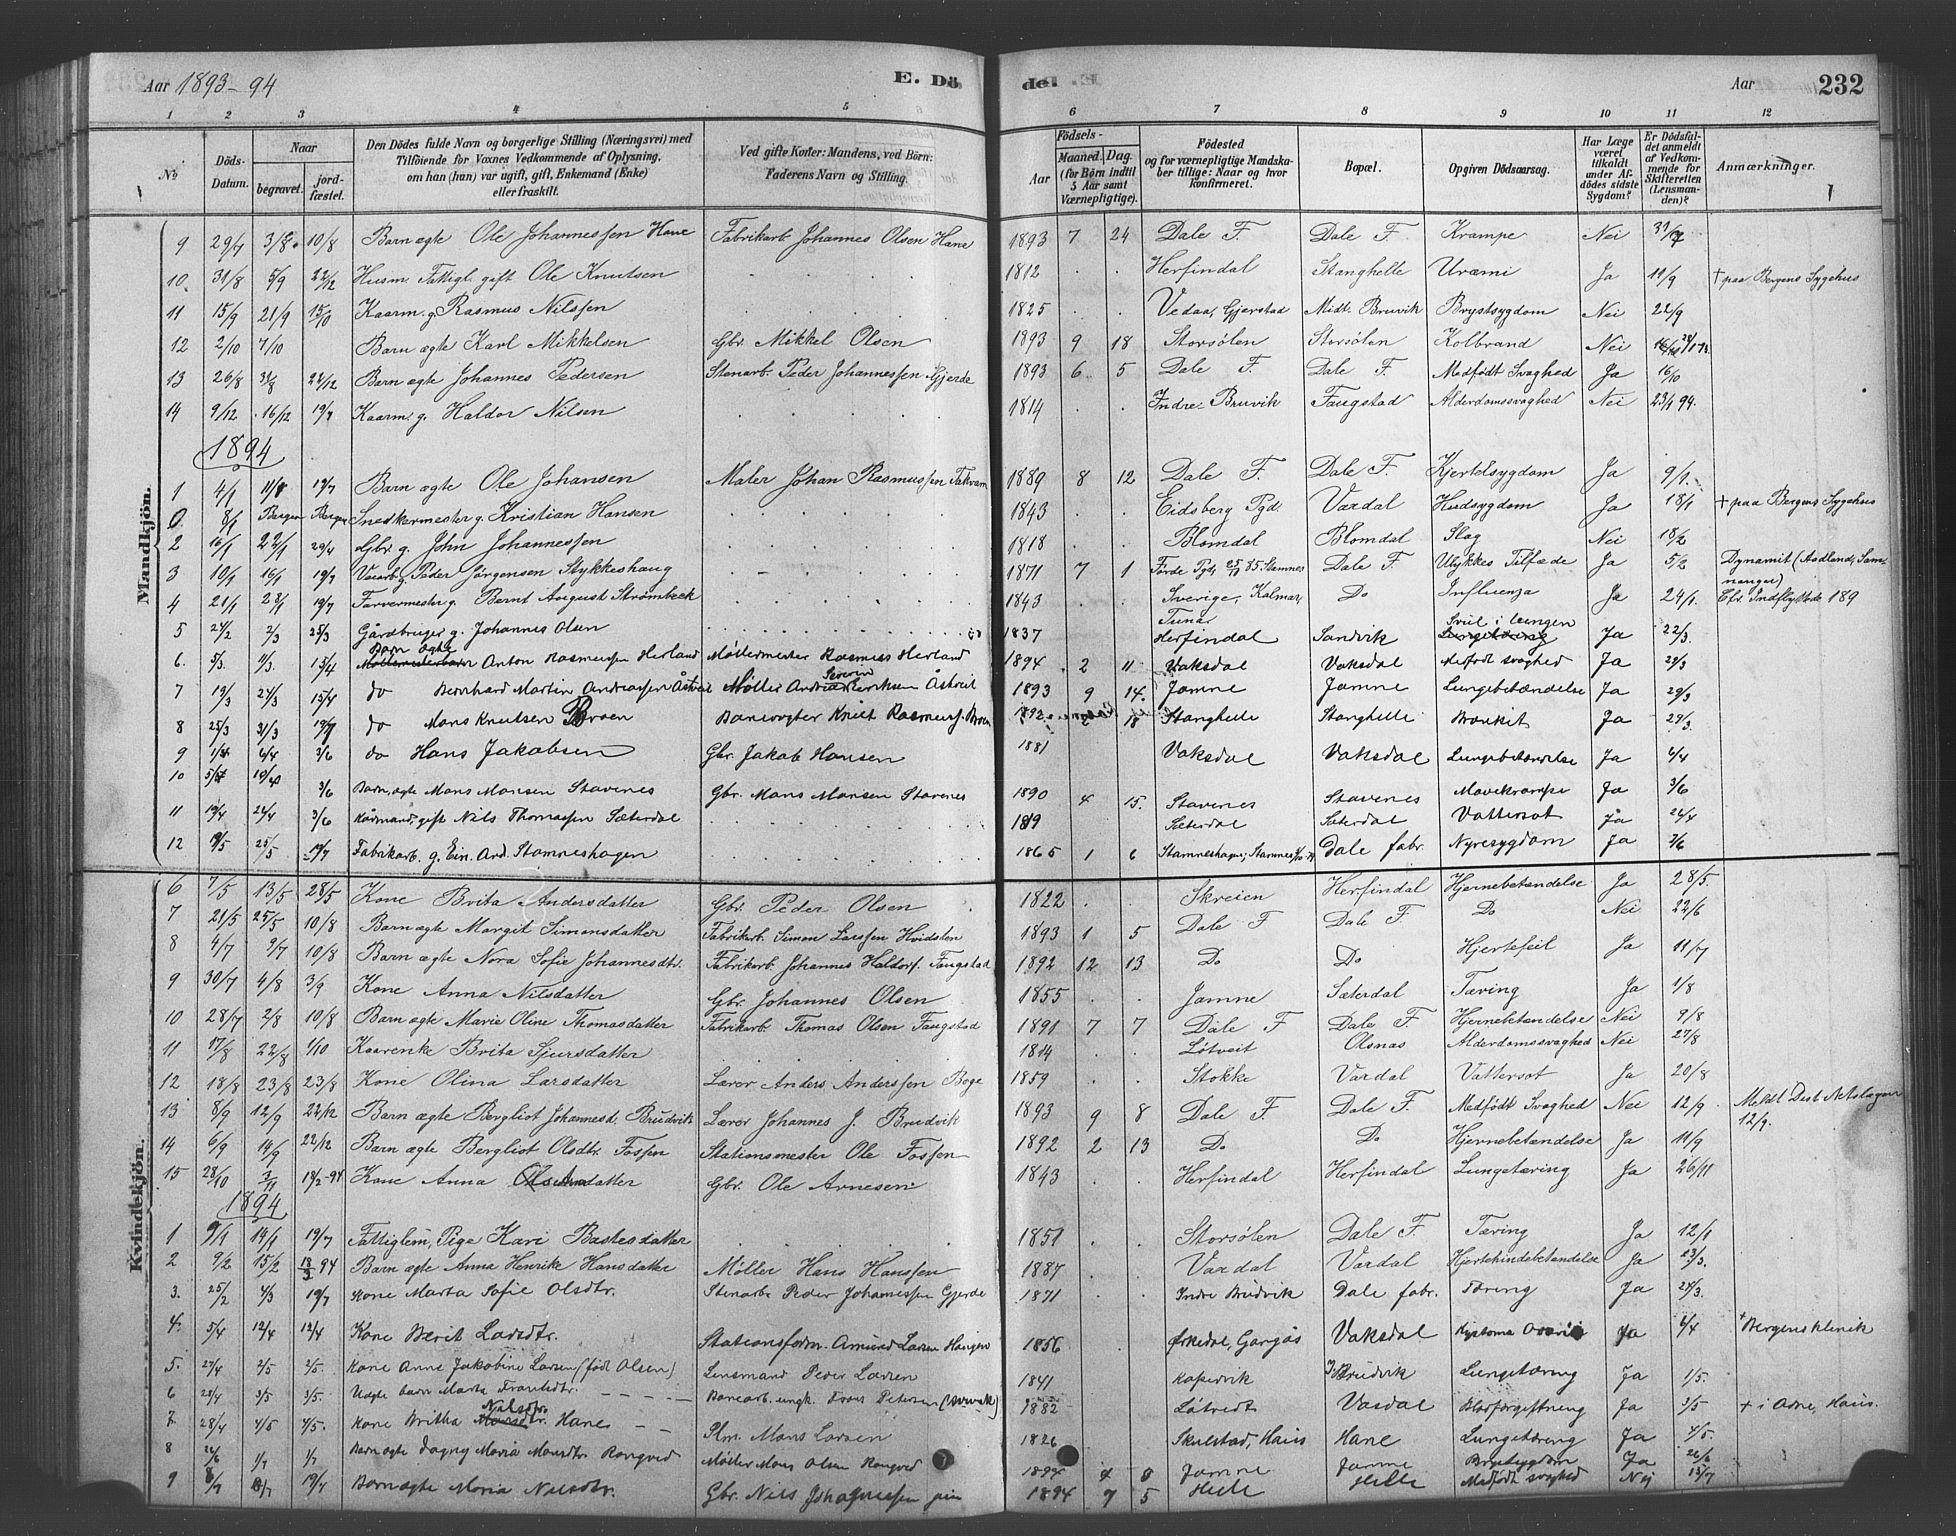 Aar 1893-94 E. Dö
de. Aar 232
1 2 3 4 5 6 7 8 9 10 11 12
No Döds-Datum. Naar begravet. jordfæstet. Den Dödes fulde Navn og borgerlige Stilling (Næringsvei) med Tilföiende for Voxnes Vedkommende af Oplysning, om han (hun) var ugift, gift, Enkemand (Enke) eller fraskilt. Ved gifte Koner: Mandens, ved Börn: Faderens Navn og Stilling. Födsels- Aar Maaned. Dag. (for Börn indtil 5 Aar samt Værnepligtige). Födested og for værnepligtige Mandskaber tillige: Naar og hvor konfirmeret. Bopæl. Opgiven Dödsaarsag. Har Læge været tilkaldt under Afdödes sidste Sygdom? Er Dödsfaldet anmeldt af Vedkommende for Skifteretten (Lensmanden)? Anmærkninger.
Mandkjön.
9 29/7 3/8 10/8 Barn ægte Ole Johannessen Hane Fabrikarb Johannes Olsen Hane 1893 7 24 Dale F. Dale F. Krampe Nei
10 31/8 5/9 22/12 Husm. Fattigl. gift Ole Knutsen 1812 . . Herfindal Stanghelle Uræmi Ja 11/9 † paa Bergens Sygehus
11 15/9 21/9 15/10 Kaarm. g. Rasmus Nilssen 1825 . . Vedaa, Gjerstad Midt. Bruvik Brystsygdom Nei 22/9
12 2/10 7/10 Barn ægte Karl Mikkelsen Gbr. Mikkel Olsen 1893 9 18 Storsølen Storsølen Kolbrand Nei
13 26/8 31/8 22/12 Barn ægte Johannes Pedersen Stenarb. Peder Johannessen Gjerde 1893 6 5 Dale F. Dale F. Medfödt Svaghed Ja 16/10
14 9/12 16/12 19/7 Kaarm. g. Haldor Nilsen 1814 . Indre Bruvik Faugstad Alderdomssvaghed Nei 23/1 94.
1894
1 4/1 11/1 19/7 Barn ægte Ole Johansen Maler Johan Rasmussen Takvam 1889 8 12 Dale F. Dale F. Kjertelsygdom Ja 9/1.
0. 8/1 Bergen Bergen Snedkermester g. Kristian Hansen 1843 . . Eidsberg Pgd. Vardal Hudsygdom Ja 18/1 † paa Bergens Sygehus
2 16/1 22/1 29/4 Gbr. g. John Johannessen 1818 . . Blomdal Blomdal Slag Nei 18/2
3 10/1 16/1 19/7 Peder Jørgensen Stykkeshaug 1871 7 1 Førde Pgd, 85. Stamnes Dale F. Ulykkes Tilfæde Ja 5/2 Dynamit (Aadland, Samnanger)
4 21/1 28/1 19/7 Farvermester g. Bernt August Strømbeck 1843 . . Sverige, Kalmar, Do Influenza Ja 24/1. Cfr. Indflyttede 189
5 24/2 2/3 25/3 Gårdbruger g. Johannes Olsen 1837 Herfindal Sandvik Svul i lungen Ja 22/3.
6. 5/3. 11/3. 15/4 Barn ægte Anton Rasmussen Herland Møllermester Rasmus Herland 1894 2 11 Vaksdal Vaksdal Medfødt svaghed Ja 29/3
7 19/3 24/3 15/4 do Bernhard Martin Andreassen Åstveit Møller Andreas Severin Henriksen Åstveit 1893 9 14. Jamne Jamne Lungebetændelse Ja 29/3
8 25/3 31/3 19/7 do Mons Knutsen Broen Banevogter Knut Rasmuss. Broen 1892 18 Stanghelle Stanghelle Bronkit Ja 29/3.
9 6/4 3/6 do Hans Jakobsen Gbr. Jakob Hansen 1881 Vaksdal Vaksdal Lungebetændelse Ja 6/4
10 3/6 Barn, ægte Mons Monsen Stavenes Gbr. Mons Monsen Stavenes 1890 4 15. Stavenes Stavenes Mavekrampe Ja 3/6
11 19/4 24/4 3/6 Kårmand, gift Nils Thomassen Sæterdal 1819 Sæterdal Sæterdal Vattersot Ja 26/4
12 19/5 25/5 19/7 Fabrikarb. g. Ein. And. Stamneshagen 1865 1 6 Stamneshagen, Stamnes Dale fabr. Nyresygdom Ja 2/6
Kvindekjön.
6 7/5 13/5 28/5 Kone Brita Andersdatter Gbr. Peder Olsen 1822 . . Skreien Herfindal Hjernebetændelse Ja 28/5.
7 21/5 25/5 10/8 Barn ægte Margit Simonsdatter Fabrikarb. Simon Larssen Hvidsten 1893 1 5 Dale F Dale F. Do Nei 22/6
8 4/7 9/7 10/8 Barn ægte Nora Sofie Johannesdtr. Fabrikarb. Johannes Haldors. Faugstad 1892 12 13 Do Do Hjertefeil Ja 11/7
9 30/7 4/8 3/9 Kone Anna Nilsdatter Gbr. Johannes Olsen 1855 . . Jamne Sæterdal Tæring Ja 1/8
10 28/7 2/8 10/8 Barn ægte Marie Oline Thomasdatter Fabrikarb Thomas Olsen Faugstad 1891 7 7 Dale F Dale F. Hjernebetændelse Nei 9/8
11 17/8 22/8 1/10 Kaarenke Brita Sjursdatter 1814 . . Løtveit Olsnas Alderdomssvaghed Nei 27/8
12 18/8 23/8 23/8 Kone Olina Larsdatter Lærer Anders Anderssen Boge 1859 . . Stokke Vardal Vattersot Ja 20/8
13 8/9 12/9 22/12 Barn ægte Bergliot Johannesd. Brudvik Lærer Johannes J. Brudvik 1893 9 8 Dale F Dale F. Medfödt Svaghed Nei 12/9 12/9.
14 6/9 14/9 22/12 Barn ægte Bergliot Olsdtr. Fossen Stationsmester Ole Fossen 1892 2 13 Do Do Hjernebetændelse Ja 11/9
15 28/10 3/11 18/2-94 Kone Anna Gbr. Ole Arnesen 1843 . . Herfindal Herfindal Lungetæring Ja 26/11
1894
1 9/1 14/1 19/7 Fattiglem, Pige Kari Bastesdatter 1851 . Storsølen Dale F. Tæring Ja 12/1
2 9/2 15/2 18/3 94 Barn ægte Anna Henrike Hansdatter Møller Hans Hanssen 1887 . . Vardal Vardal Hjertehindebetændelse Ja 23/3.
3. 25/2 4/3 19/7 Kone Marta Sofie Olsdtr. Stenarb Peder Johannessen Gjerde 1871 . . Indre Brudvik Dale fabr. Tæring Ja 24/3.
4. 5/4 12/4 12/4 Kone Berit Larsdtr. Stationsform. Amund Larsen Haugen 1856 Ørkedal, Vaksdal Kystoma Ja 6/4 † Bergens klinik
5. 27/4 2/5 2/5. Kone Anne Jakobine Larsen (født Olsen) Lensmand Peder Larsen 1841 Kopervik I. Brudvik Lungetæring Ja 1/5.
6 28/4 3/5 3/5. Uægte barn Marta Frantsdtr. Banearb. ungk. Frans Petersen (svensk) 1882 Løtvedt Vasdal Blodforgiftning Ja 3/5 † i Arne, Haus.
7. 28/4 4/5 4/5. Kone Britha Nilsdtr. Hane Plm. Mons Larsen 1826 Skulstad, Haus Hane Lungetæring Ja 4/5.
8 26/6 1/7 1/7 Barn ægte Dagny Maria Monsdtr. Rongved Møller Mons Olsen Rongved 1894 4 8 Jamne Jamne Brystsygdom Ja 26/6
9 8/7 19/7 Barn ægte Maria Nilsdtr. Gbr. Nils Johannessen 1894 7 5 Helle Helle Medfødt svaghed Nej 13/7